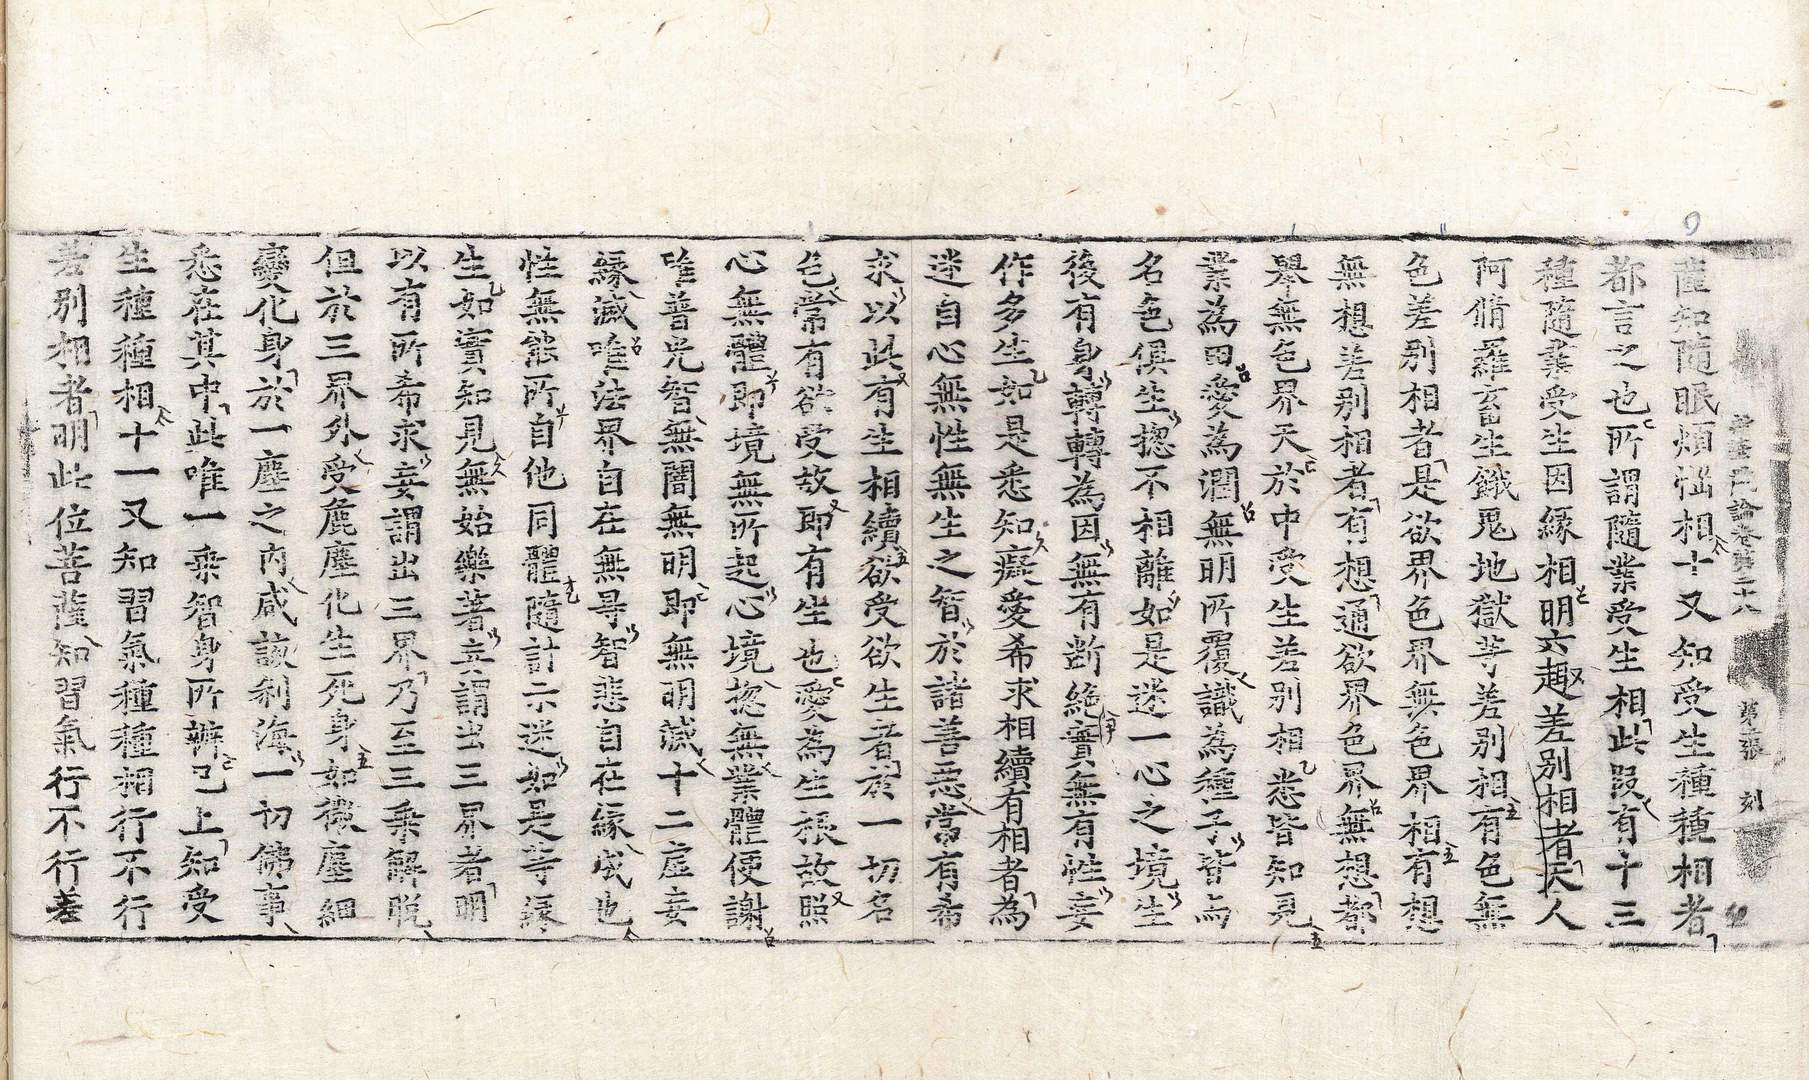 薩知隨眠煩惱相十又知受生種種相者
都言之也所謂隨業受生相此段有十三
種隨業受生因緣相明六趣差別相者天人
阿脩羅畜生餓鬼地獄等差別相有色無
色差別相者是欲界色界無色界相有想
無想差別相者有想通欲界色界無想都
舉無色界天於中受生差別相悉皆知見
業為田愛為潤無明所覆識為種子皆与
名色俱生揔不相離如是迷一心之境生
後有身轉轉為因無有断絕實無有性妄
作多生如是悉知癡愛希求相續有相者為
迷自心無性無生之智於諸善惡常有希
求以此有生相續欲受欲生者於一切名
色常有欲受故即有生也愛為生根故照
心無體即境無所起心境揔無業體便謝
唯普光智無闇無明即無明滅十二虛妄
緣滅唯法界自在無㝵智悲自在緣成也
性無能所自他同體隨計示迷如是等緣
生如實知見無始樂著妄謂出三界者明
以有所希求妄謂出三界乃至三乗解脫
但於三界外受麁塵化生死身如微塵細
變化身於一塵之內咸該剎海一切佛事
悉在其中此唯一乗智身所辦已上知受
生種種相十一又知習氣種種相行不行
差別相者明此位菩薩知習氣行不行差
論卷第二十八
第
張
刻